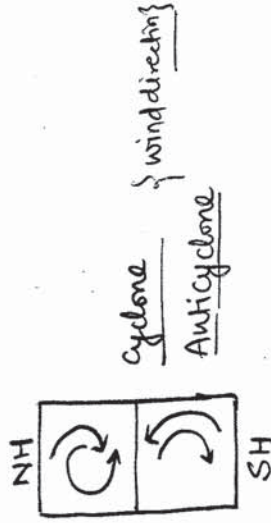 NH
SH
Cyclone
Anticyclone
} wind direction}